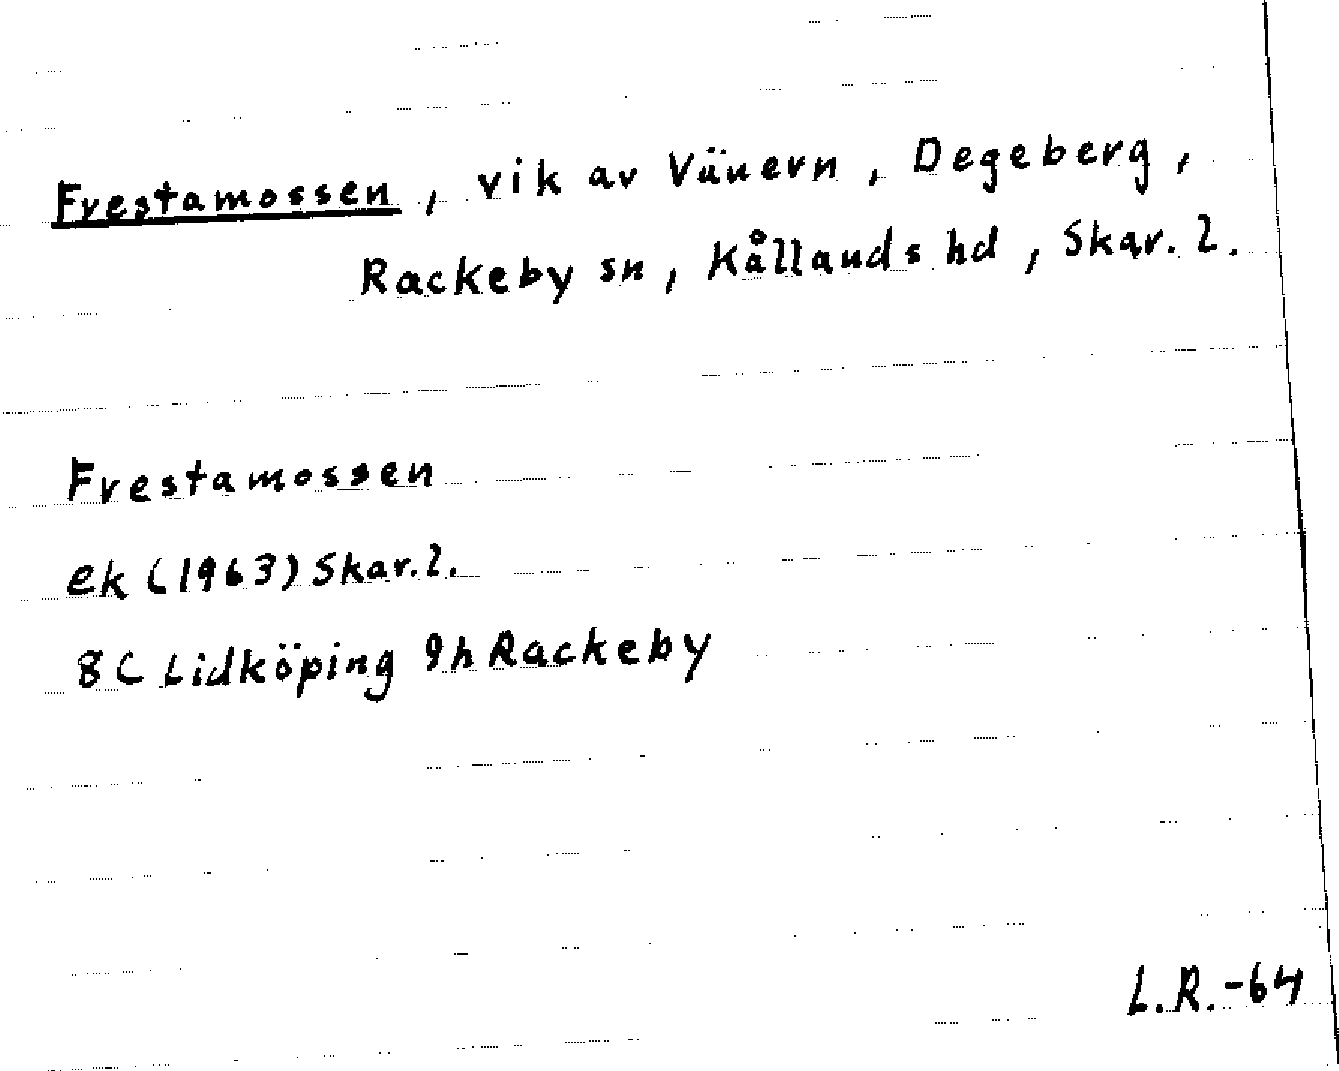 Frestamossen, vik av Vänern, Degeberg,
Rackeby sn, Kållands hd, Skar. l.
Frestamossen
ek (1963) Skar. l.
8C Lidköping 9h Rackeby
L.R.-64